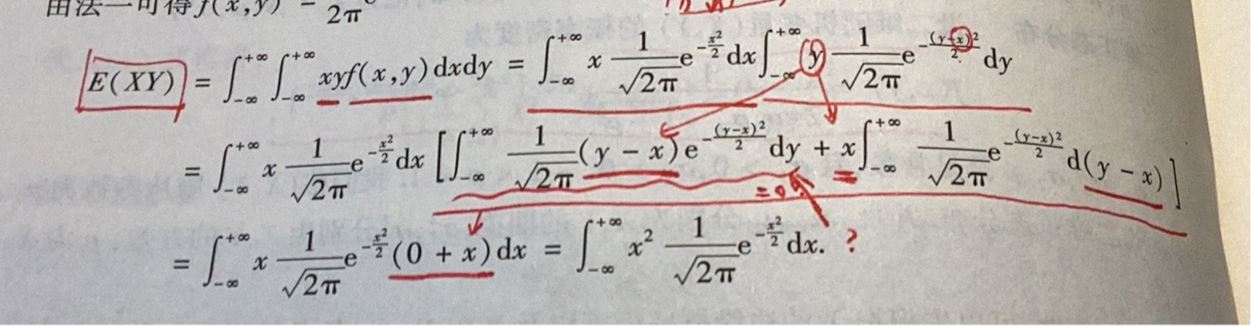 由法一可得f(x,y) = 1/2π e
E(XY) = ∫_{-∞}^{+∞} ∫_{-∞}^{+∞} xyf(x,y)dxdy = ∫_{-∞}^{+∞} x 1/√(2π) e^{-x²/2} dx ∫_{-∞}^{+∞} y 1/√(2π) e^{-(y-x)²/2} dy
= ∫_{-∞}^{+∞} x 1/√(2π) e^{-x²/2} dx [∫_{-∞}^{+∞} 1/√(2π) (y-x) e^{-(y-x)²/2} dy + x ∫_{-∞}^{+∞} 1/√(2π) e^{-(y-x)²/2} d(y-x)]
= 0
= ∫_{-∞}^{+∞} x 1/√(2π) e^{-x²/2} (0+x)dx = ∫_{-∞}^{+∞} x² 1/√(2π) e^{-x²/2} dx. ?